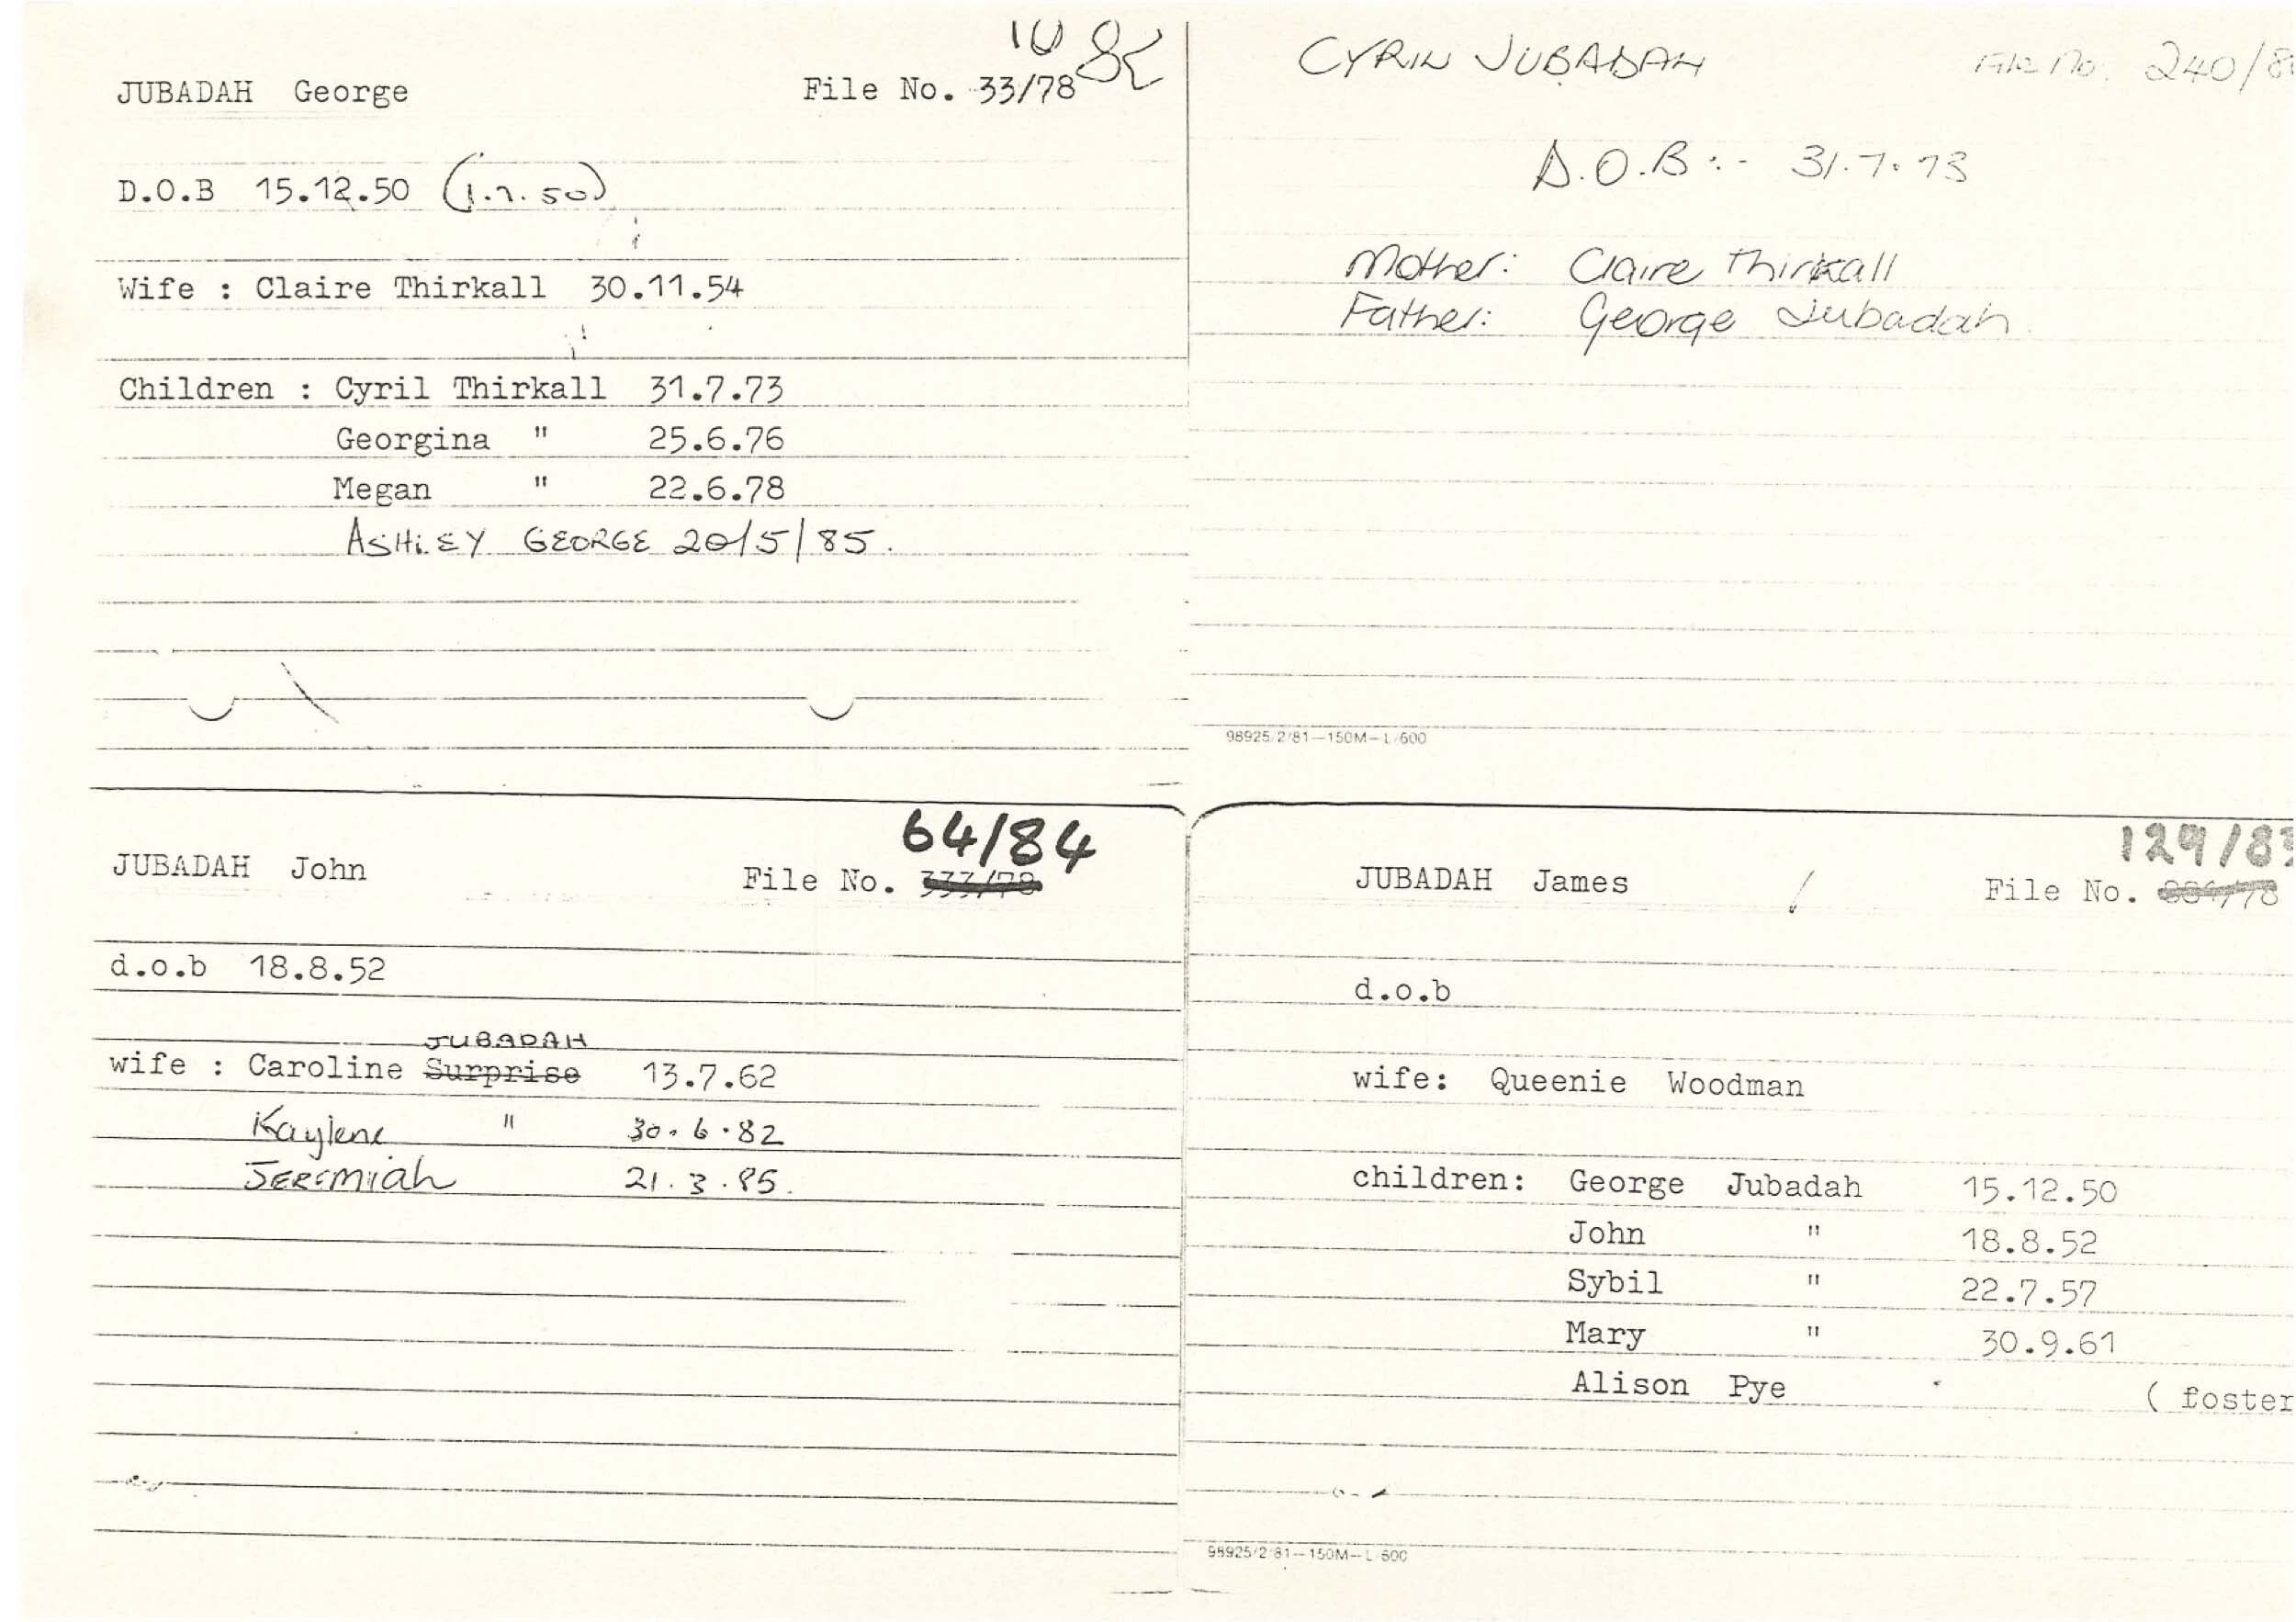 10 82
JUBADAH George File No. 33/78
D.O.B 15.12.50 (1.7.50)
Wife : Claire Thirkall 30.11.54
Children : Cyril Thirkall 31.7.73
Georgina " 25.6.76
Megan " 22.6.78
ASHLEY GEORGE 20/5/85.
CYRIN JUBADAH File No. 240/8
D.O.B :- 31.7.73
Mother: Claire Thirkall
Father: George Jubadah
98925/2/81—150M—L/600
64/84
JUBADAH John File No. 333/78
d.o.b 18.8.52
JUBADAH
wife : Caroline Surprise 13.7.62
Kaylene " 30.6.82
JEREMIAH 21.3.85.
129/83
JUBADAH James File No.
d.o.b
wife: Queenie Woodman
children: George Jubadah 15.12.50
John " 18.8.52
Sybil " 22.7.57
Mary " 30.9.61
Alison Pye ( foster
98925/2/81—150M—L/600